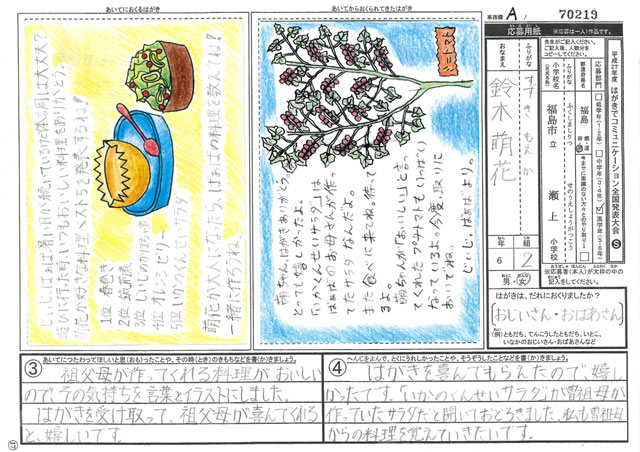 あいてにおくるはがき
じいじ、ばぁば暑い日が続いていますが体調は大丈夫?
遊びに行た時とてもおいしい料理をありがとう。
萌花が好きな料理ベスト5を発表するね!
1位 春巻き
2位 筑前煮
4位 オレンジゼリー
5位 いかくんせいサラダ
萌花が大きくなったら、ばぁばの料理を教えてね!
一緒に作ろうね
あいてからおくられてきたはがき
ミニトマト
萌ちゃん、はがきありがとう。
とっても嬉しかったよ。
「いかくんせいサラダ」は
ばぁばのお母さんが作っ
てたサラダなんだよ。
また食べに来てね。待って
るよ。
萌ちゃんが「おいしい」と言っ
てくれたプチトマトもいっぱい
なっているよ。今度、取りに
おいでね。
じいじ・ばぁばより。
事務欄 A 70219
応募用紙
※応募は一人1作品です。
先生がご記入ください。
ご記入後、人数分を
コピーしてください。
平成27年度 はがきでコミュニケーション全国発表大会 S
応募部門
低学年(1・2年)
中学年(3・4年)
高学年(5・6年)
今までに面識のない方々とのやり取り
都道府県名
福島 都道府県
ふりがな
小学校名
(正式名称)
ふくしましりつ
福島市立
せのうえしょうがっこう
瀬上 小学校
ふりがな
おなまえ
すずき もえか
鈴木 萌花
年 6
組 2
男・女
※応募者(本人)が太枠の中の
記入をしてください。
はがきは、だれにおくりましたか?
(おじいさん・おばあさん)
(例)ともだち、てんこうしたともだち、いとこ、
いなかのおじいさん・おばあさんなど
③ あいてにつたわってほしいと思(おも)ったことや、その時(とき)のきもちなどを書(か)きましょう。
祖父母が作ってくれる料理がおいしい
ので、その気持ちを言葉とイラストにしました。
はがきを受け取って、祖父母が喜んでくれる
と、嬉しいです。
④ へんじをよんで、とくにうれしかったことや、そうぞうしたことなどを書(か)きましょう。
はがきを喜んでもらえたので、嬉し
かったです。「いかのくんせいサラダ」が曽祖母が
作っていたサラダだと聞いておどろきました。私も曽祖母
からの料理を覚えていきたいです。